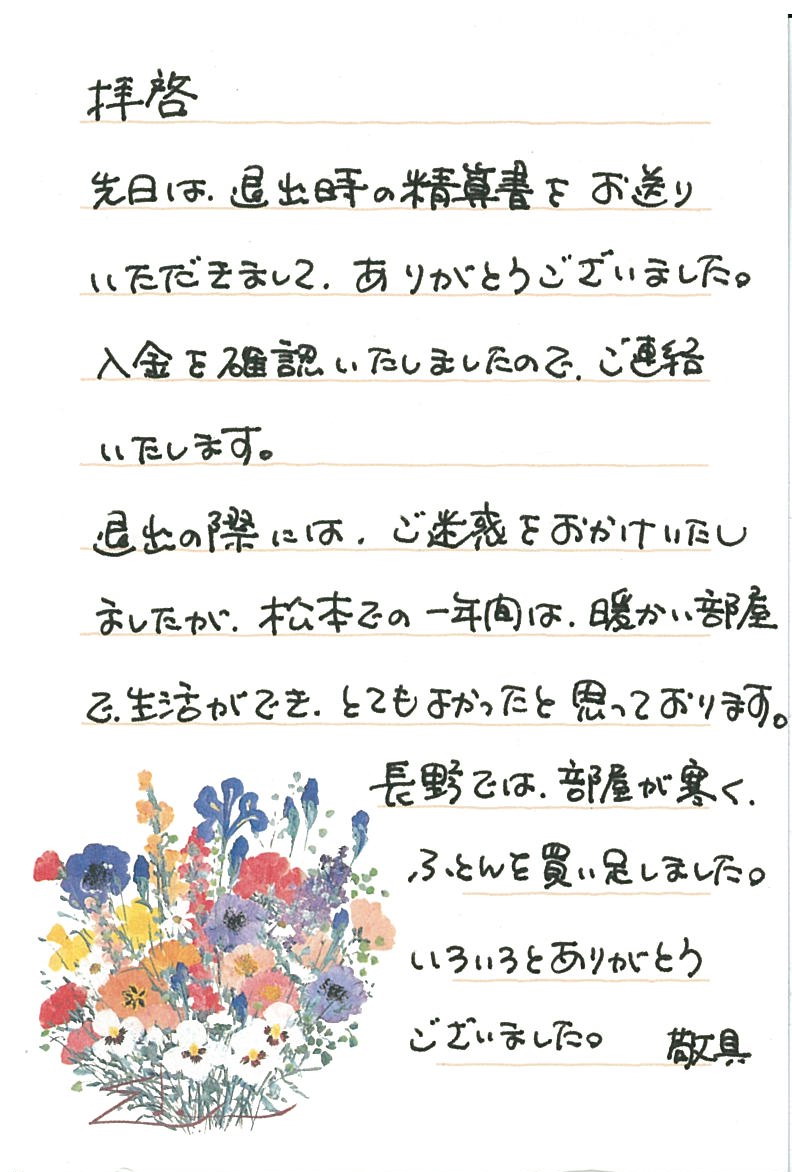 拝啓
先日は、退出時の精算書を お送り
いただきまして、ありがとうございました。
入金を確認いたしましたので、ご連絡
いたします。
退出の際には、ご迷惑をおかけいたし
ましたが、松本での一年間は、暖かい部屋
で、生活ができ、とてもよかったと思っております。
長野では、部屋が寒く、
ふとんを買い足しました。
いろいろとありがとう
ございました。 敬具